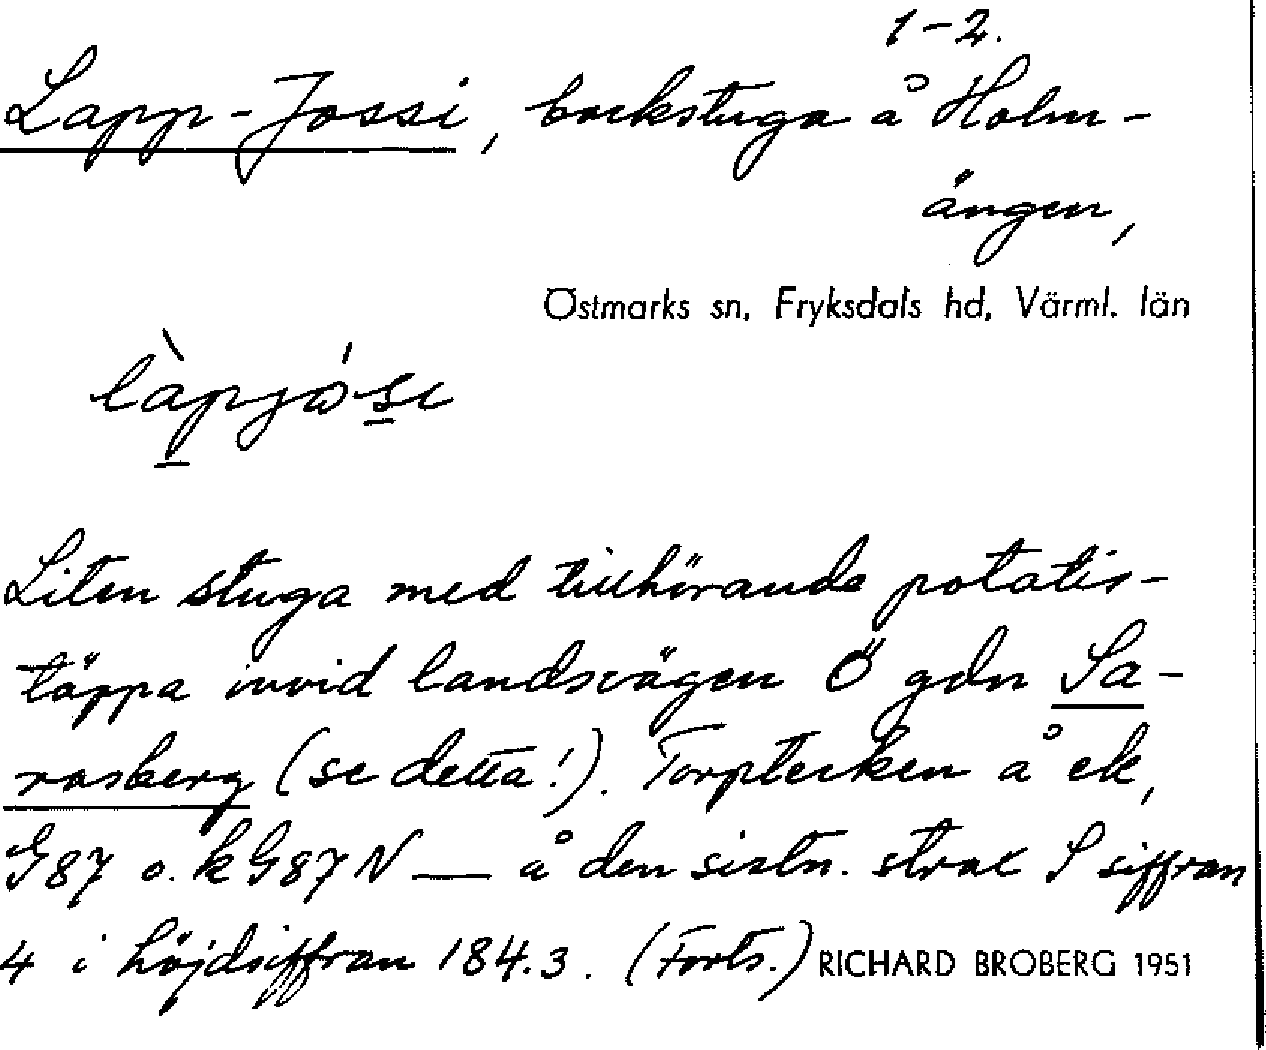 1-2.
Lapp-Jossi, backstuga å Holm-
ängen,
Östmarks sn, Fryksdals hd, Värml. län
Liten stuga med tillhörande potatis-
täppa invid landsvägen Ö gdn Sa-
rasberg (se detta!). Torptecken å ek,
G87 o. kG87N — å den sistn. strax S siffran
4 i höjdsiffran 184.3. (Forts.) RICHARD BROBERG 1951